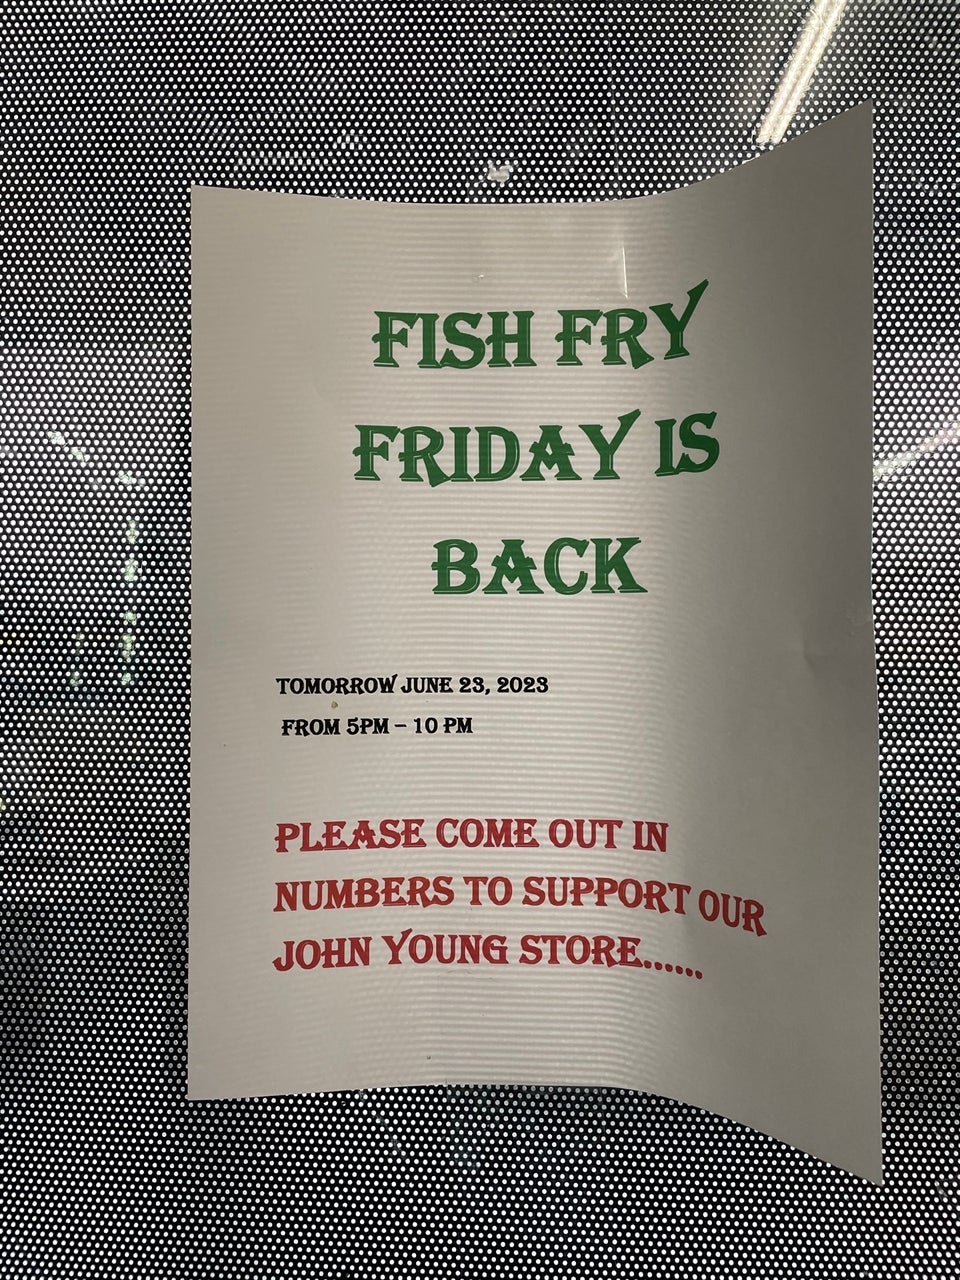 FISH FRY
FRIDAY IS
BACK
TOMORROW JUNE 23, 2023
FROM 5PM – 10 PM
PLEASE COME OUT IN
NUMBERS TO SUPPORT OUR
JOHN YOUNG STORE......